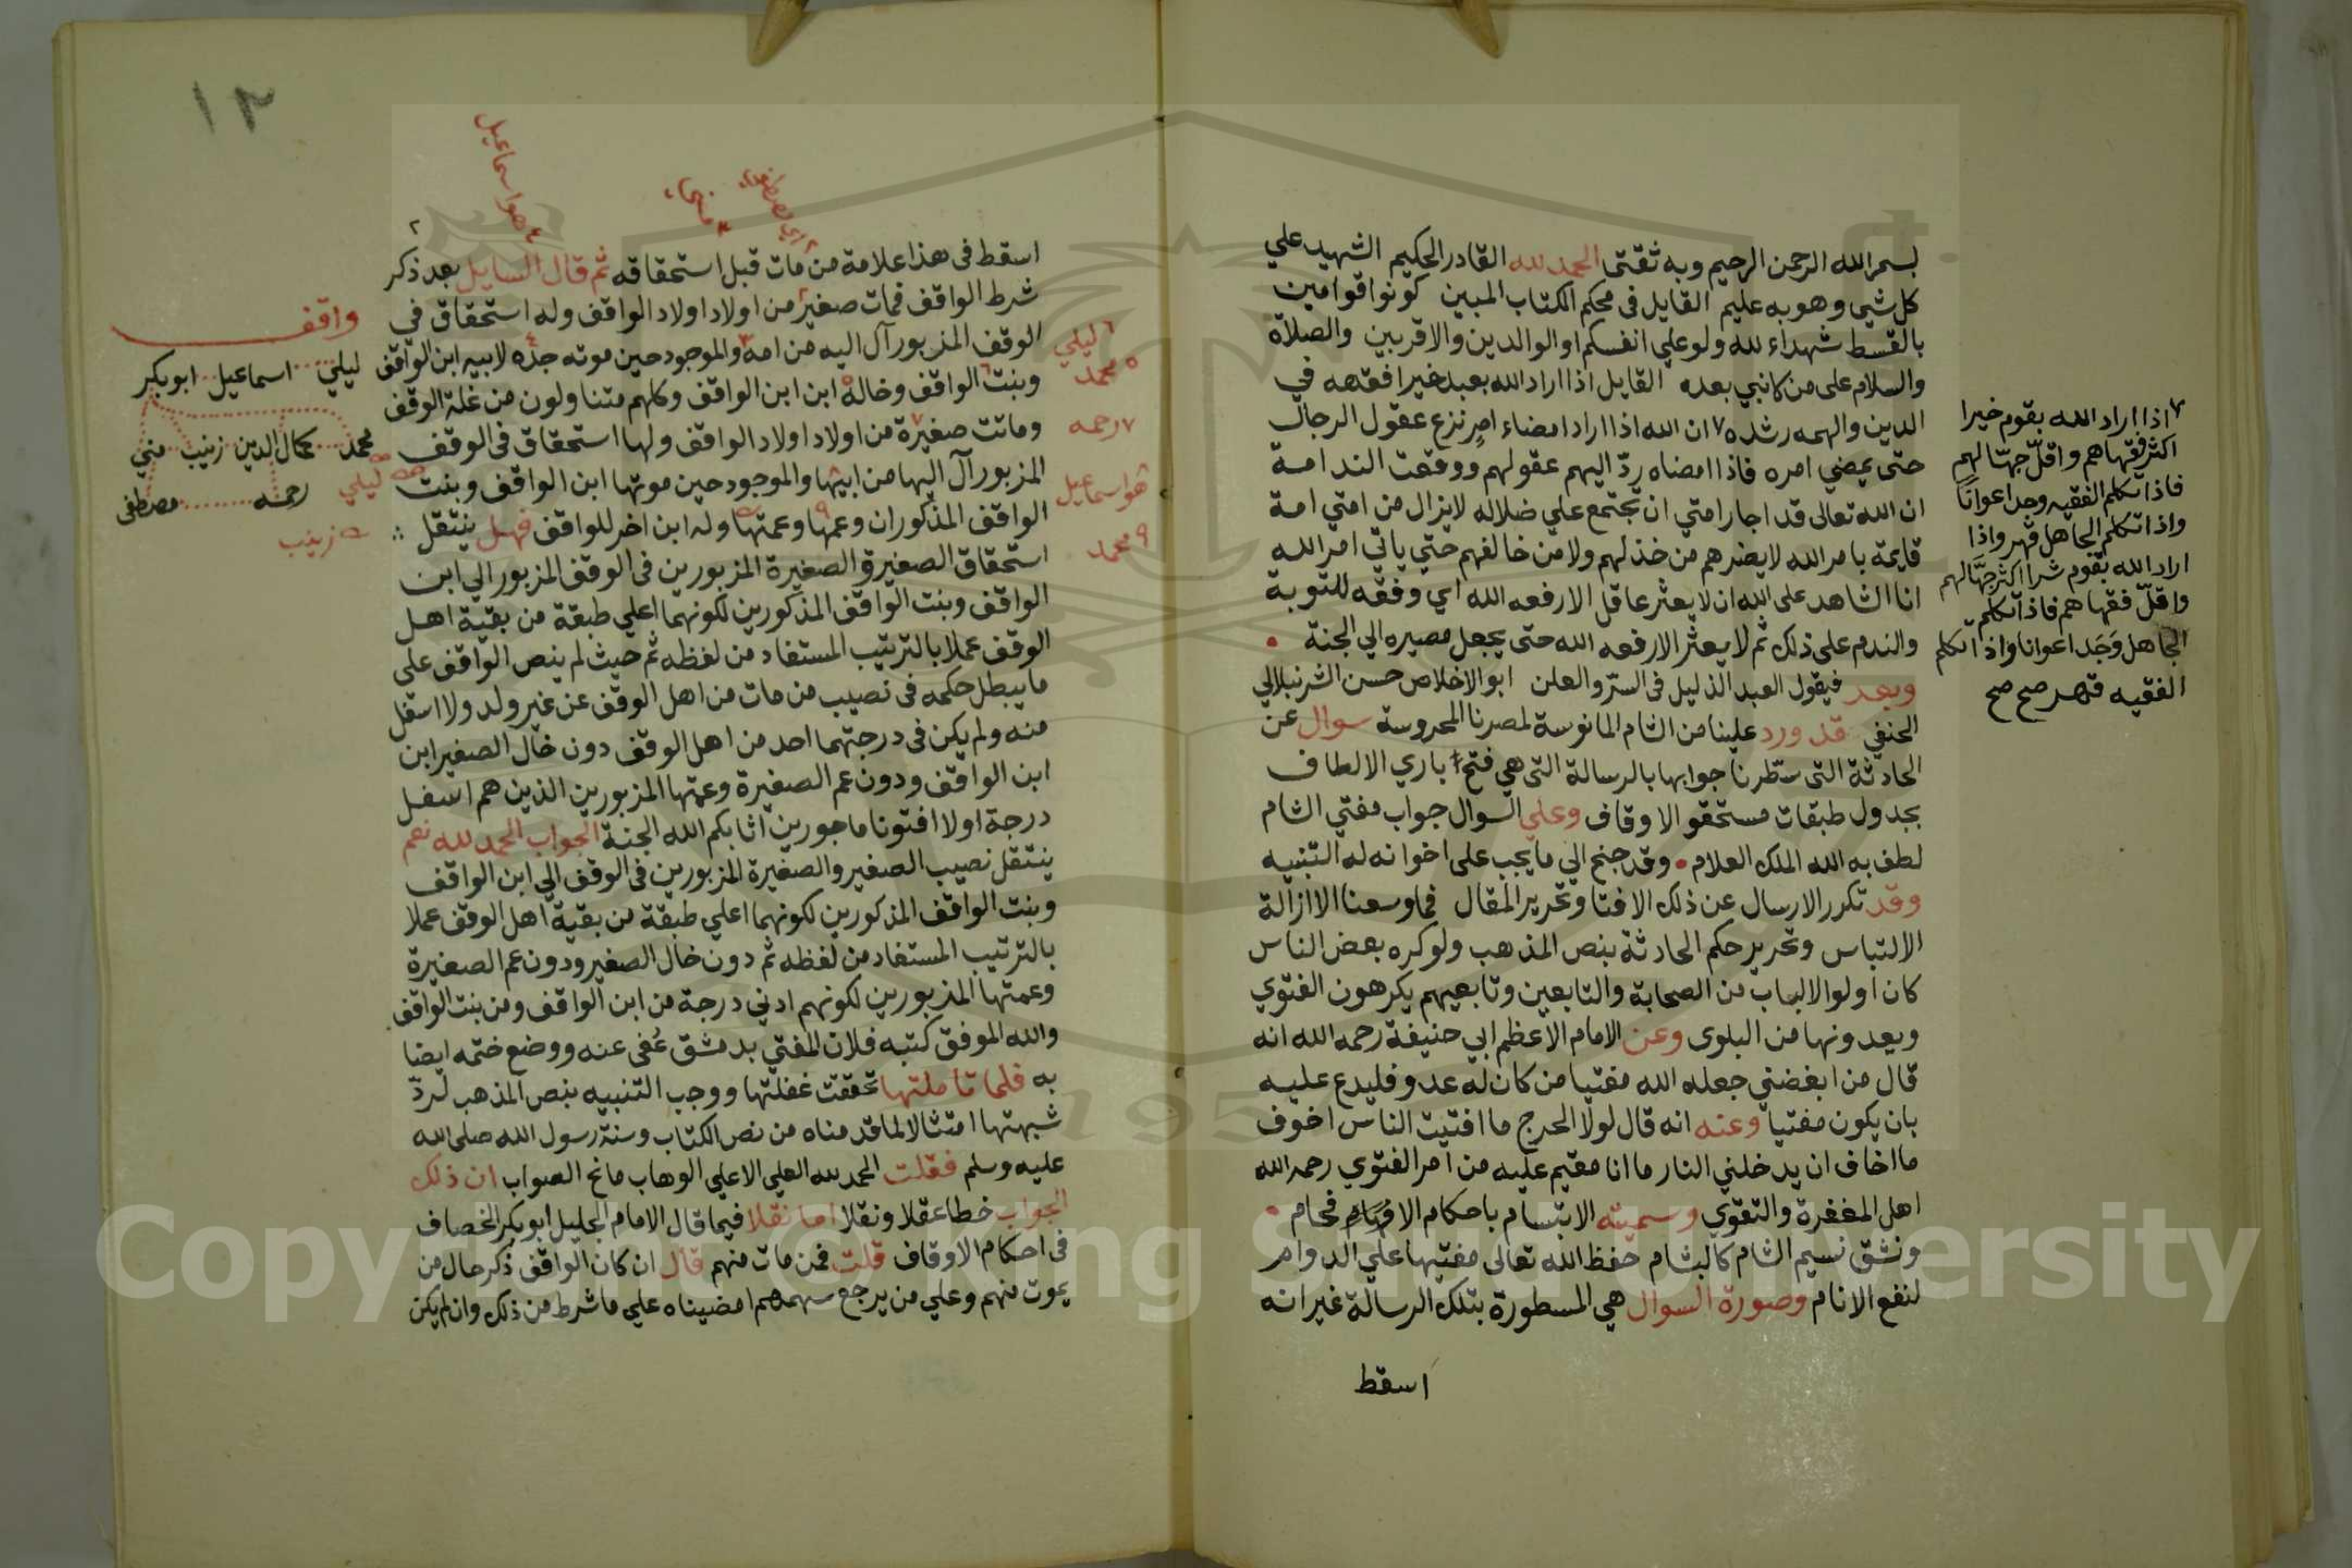 بسم الله الرحمن الرحيم وبه ثقتي الحمد لله القادر الحكيم الشهيد علي
كل شي وهو به عليم القايل في محكم الكتاب المبين كونوا قوامين
بالقسط شهداء لله ولو علي انفسكم او الوالدين والاقربين والصلاة
والسلام على من لا نبي بعده القايل اذا اراد الله بعبد خيرا فقهه في
الدين والهمه رشده ٧ ان الله اذا اراد امضاء امر نزع عقول الرجال
حتى يمضي امره فاذا امضاه ردّ اليهم عقولهم ووقعت الندامة
ان الله تعالى قد اجار امتي ان تجتمع علي ضلاله لا يزال من امتي امة
قايمة بامر الله لا يضرهم من خذلهم ولا من خالفهم حتي ياتي امر الله
انا الشاهد على الله ان لا يعثر عاقل الا رفعه الله اي وفقه للتوبة
والندم على ذلك ثم لا يعثر الا رفعه الله حتى يجعل مصيره الي الجنة
وبعد فيقول العبد الذليل في السرّ والعلن ابو الاخلاص حسن الشرنبلالي
الحنفي قد ورد علينا من الشام المانوسة لمصرنا المحروسة سوال عن
الحادثة التي سطّرنا جوابها بالرسالة التي هي فتح باري الالطاف
بجدول طبقات مستحقو الاوقاف وعلي السوال جواب مفتي الشام
لطف به الله الملك العلام وقد جنح الي ما يجب على اخوانه له التنبيه
وقد تكرر الارسال عن ذلك الافتا وتحرير المقال فما وسعنا الا ازالة
الالتباس وتحرير حكم الحادثة بنص المذهب ولو كره بعض الناس
كان اولوا الالباب من الصحابة والتابعين وتابعيهم يكرهون الفتوي
ويعدونها من البلوى وعن الامام الاعظم ابي حنيفة رحمه الله انه
قال من ابغضني جعله الله مفتيا من كان له عدو فليدع عليه
بان يكون مفتيا وعنه انه قال لولا الحرج ما افتيت الناس اخوف
ما اخاف ان يدخلني النار ما انا مقيم عليه من امر الفتوي رحمه الله
اهل المغفرة والتقوي وسميته الابتسام باحكام الافحام
ونشق نسيم الشام كالبشام حفظ الله تعالى مفتيها علي الدوام
لنفع الانام وصورة السوال هي المسطورة بتلك الرسالة غير انه
اسقط
٧ اذا اراد الله بقوم خيرا
اكثر فقهاهم واقلّ جهّالهم
فاذا تكلم الفقيه وجد اعوانًا
واذا تكلم الجاهل قهر واذا
اراد الله بقوم شرا اكثر جهّالهم
واقلّ فقهاهم فاذا تكلم
الجاهل وَجَد اعوانا واذا تكلم
الفقيه قهر صح صح
١٢
هو اسماعيل
منجا
اي مصطفى
اسقط في هذا علامة من مات قبل استحقاقه ثم قال السايل بعد ذكر
شرط الواقف فمات صغير من اولاد اولاد الواقف وله استحقاق في
الوقف المزبور آل اليه من امه والموجود حين موته جده لابيه ابن الواقف
وبنت الواقف وخاله ابن ابن الواقف وكلهم متناولون من غلة الوقف
وماتت صغيرة من اولاد اولاد الواقف ولها استحقاق في الوقف
المزبور آل اليها من ابيها والموجود حين موتها ابن الواقف وبنت
الواقف المذكوران وعمها وعمتها وله ابن اخر للواقف فهل ينتقل
استحقاق الصغير والصغيرة المزبورين في الوقف المزبور الي ابن
الواقف وبنت الواقف المذكورين لكونهما اعلي طبقة من بقية اهل
الوقف عملا بالترتيب المستفاد من لفظه ثم حيث لم ينص الواقف على
ما يبطل حكمه في نصيب من مات من اهل الوقف عن غير ولد ولا اسفل
منه ولم يكن في درجتهما احد من اهل الوقف دون خال الصغير ابن
ابن الواقف ودون عم الصغيرة وعمتها المزبورين الذين هم اسفل
درجة او لا افتونا ماجورين اثابكم الله الجنة الجواب الحمد لله نعم
ينتقل نصيب الصغير والصغيرة المزبورين في الوقف الي ابن الواقف
وبنت الواقف المذكورين لكونهما اعلي طبقة من بقية اهل الوقف عملا
بالترتيب المستفاد من لفظه ثم دون خال الصغير ودون عم الصغيرة
وعمتها المزبورين لكونهم ادني درجة من ابن الواقف ومن بنت الواقف
والله الموفق كتبه فلان المفتي بدمشق عُفى عنه ووضع ختمه ايضا
به فلما تاملتها تحققت غفلتها ووجب التنبيه بنص المذهب لردّ
شبهتها امتثالا لما قدمناه من نص الكتاب وسنة رسول الله صلى الله
عليه وسلم فقلت الحمد لله العلي الاعلي الوهاب مانح الصواب ان ذلك
الجواب خطا عقلا ونقلا اما نقلا فيما قال الامام الجليل ابو بكر الخصاف
في احكام الاوقاف قلت فمن مات منهم قال ان كان الواقف ذكر حال من
يموت منهم وعلي من يرجع سهمهم امضيناه علي ما شرط من ذلك وان لم يكن
٦ ليلي
٥ محمد
٧ رحمه
هو اسماعيل
٩ محمد
واقف
ليلي اسماعيل ابو بكر
محمد كمال الدين زينب مني
ليلي رحمه مصطفى
زينب
Copyright © King Saud University
1957